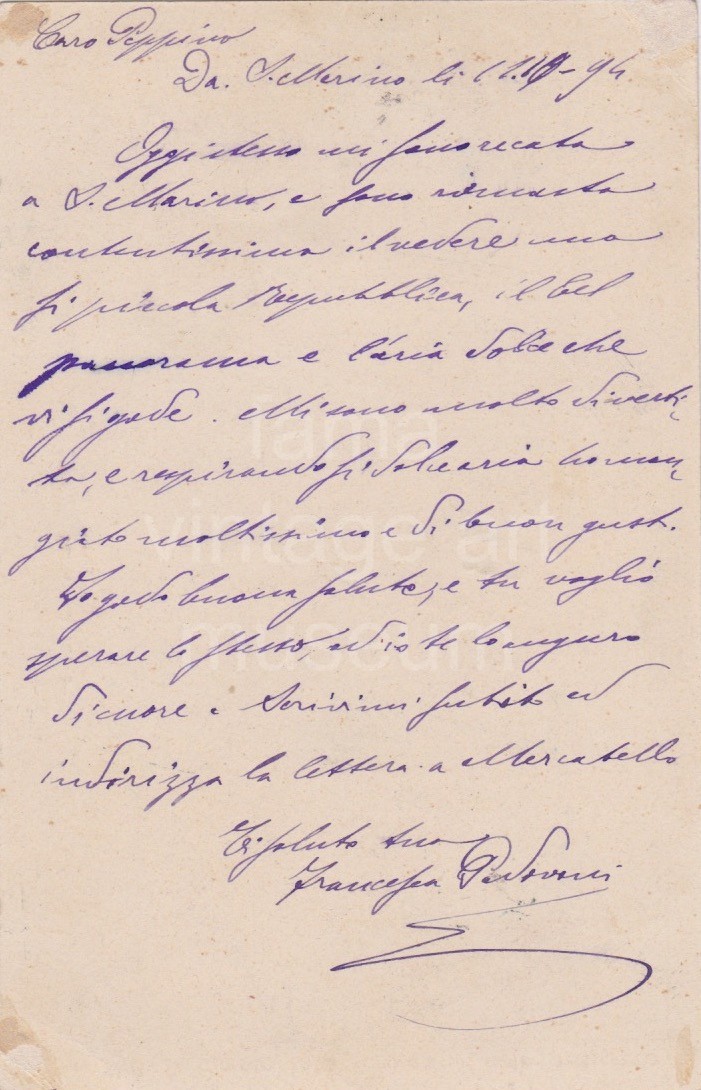 Caro Peppino
Da. S. Merino li 12. - 94
Oggi stesso mi sono recata
a S. Marino, e sono rimasta
contentissima il vedere una
si piccola Repubblica, il bel
panorama e l'aria dolce che
vi si gode. Mi sono molto diverti-
ta, e respirando si dolce aria ho man-
giato moltissimo e di buon gust.
Io godo buona salute, e tu voglio
sperare lo stesso, ed io te lo auguro
di cuore e Scrivimi subito ed
indirizza la lettera a Mercatello
Ti saluto tua
Francesca Padovani
fama
vintage art
museum